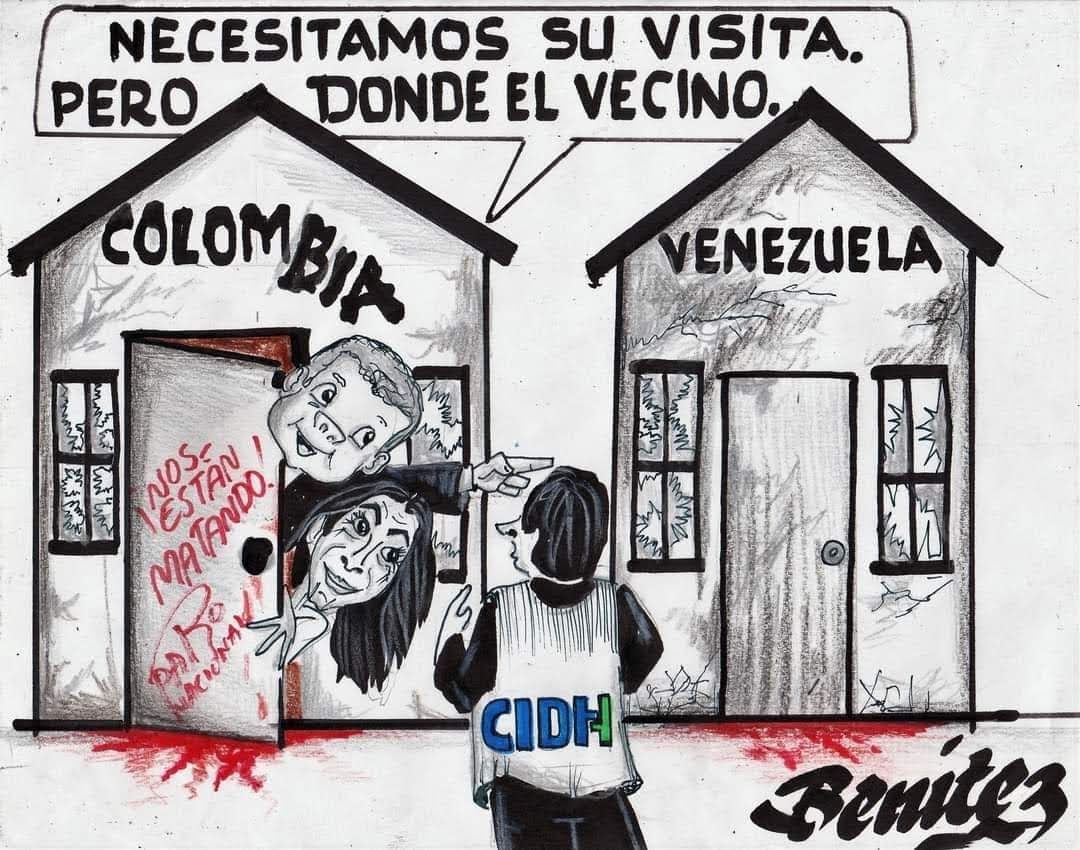 NECESITAMOS SU VISITA.
PERO DONDE EL VECINO.
COLOMBIA
VENEZUELA
¡NOS
ESTÁN
MATANDO!
PARO
NACIONAL
CIDH
Benítez